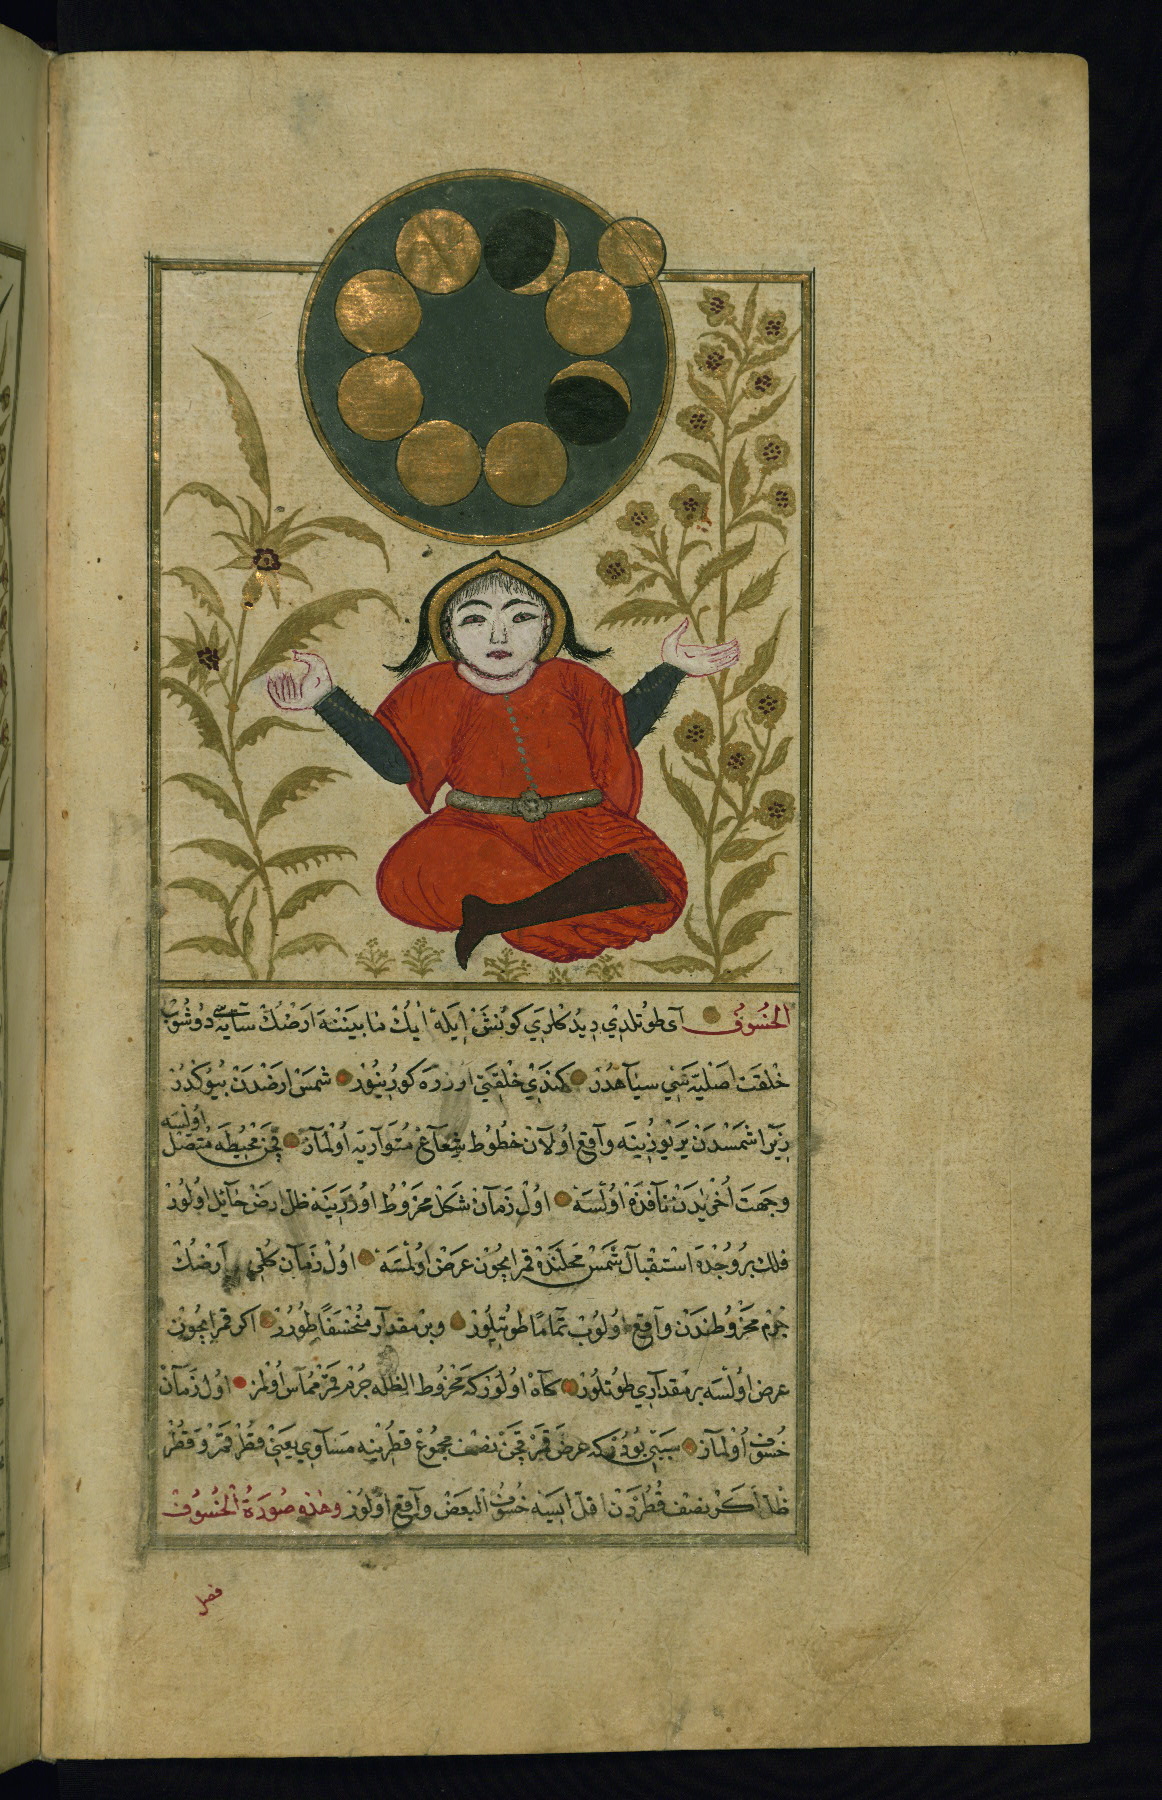 الخسوف آی طوتلدی دیدکلری کونش ایله آیک مابیننه ارضک سایه سی دوشوب
خلقت اصلیه سی سیاهدر کندی خلقتی اوزره کورینور شمس ارضدن بیوکدر
زیرا شمسدن یر یوزینه واقع اولان خطوط شعاع متواریه اولماز قچن محیطه متصل اولسه
وجهت اخریدن نافذه اولسه اول زمان شکل مخروط اوزرینه ظل ارض حایل اولور
فلک بروجده استقبال شمس محلنده قمرایچون عرض اولمسه اول زمان کلی ارضک
جرم مخروطندن واقع اولوب تماما طوتیلور وبر مقدار منخسفا طورر اکر قمرایچون
عرض اولسه بر مقداری طوتلور کاه اولورکه مخروط الظله جرم قمر مماس اولمز اول زمان
خسوف اولماز سببی بودرکه عرض قمر قچن نصف مجموع قطرینه مساوی یعنی قطر قمر و قطر
ظل اکر نصف قطردن اقل ایسه خسوف البعض واقع اولور وهذه صورة الخسوف
فصل